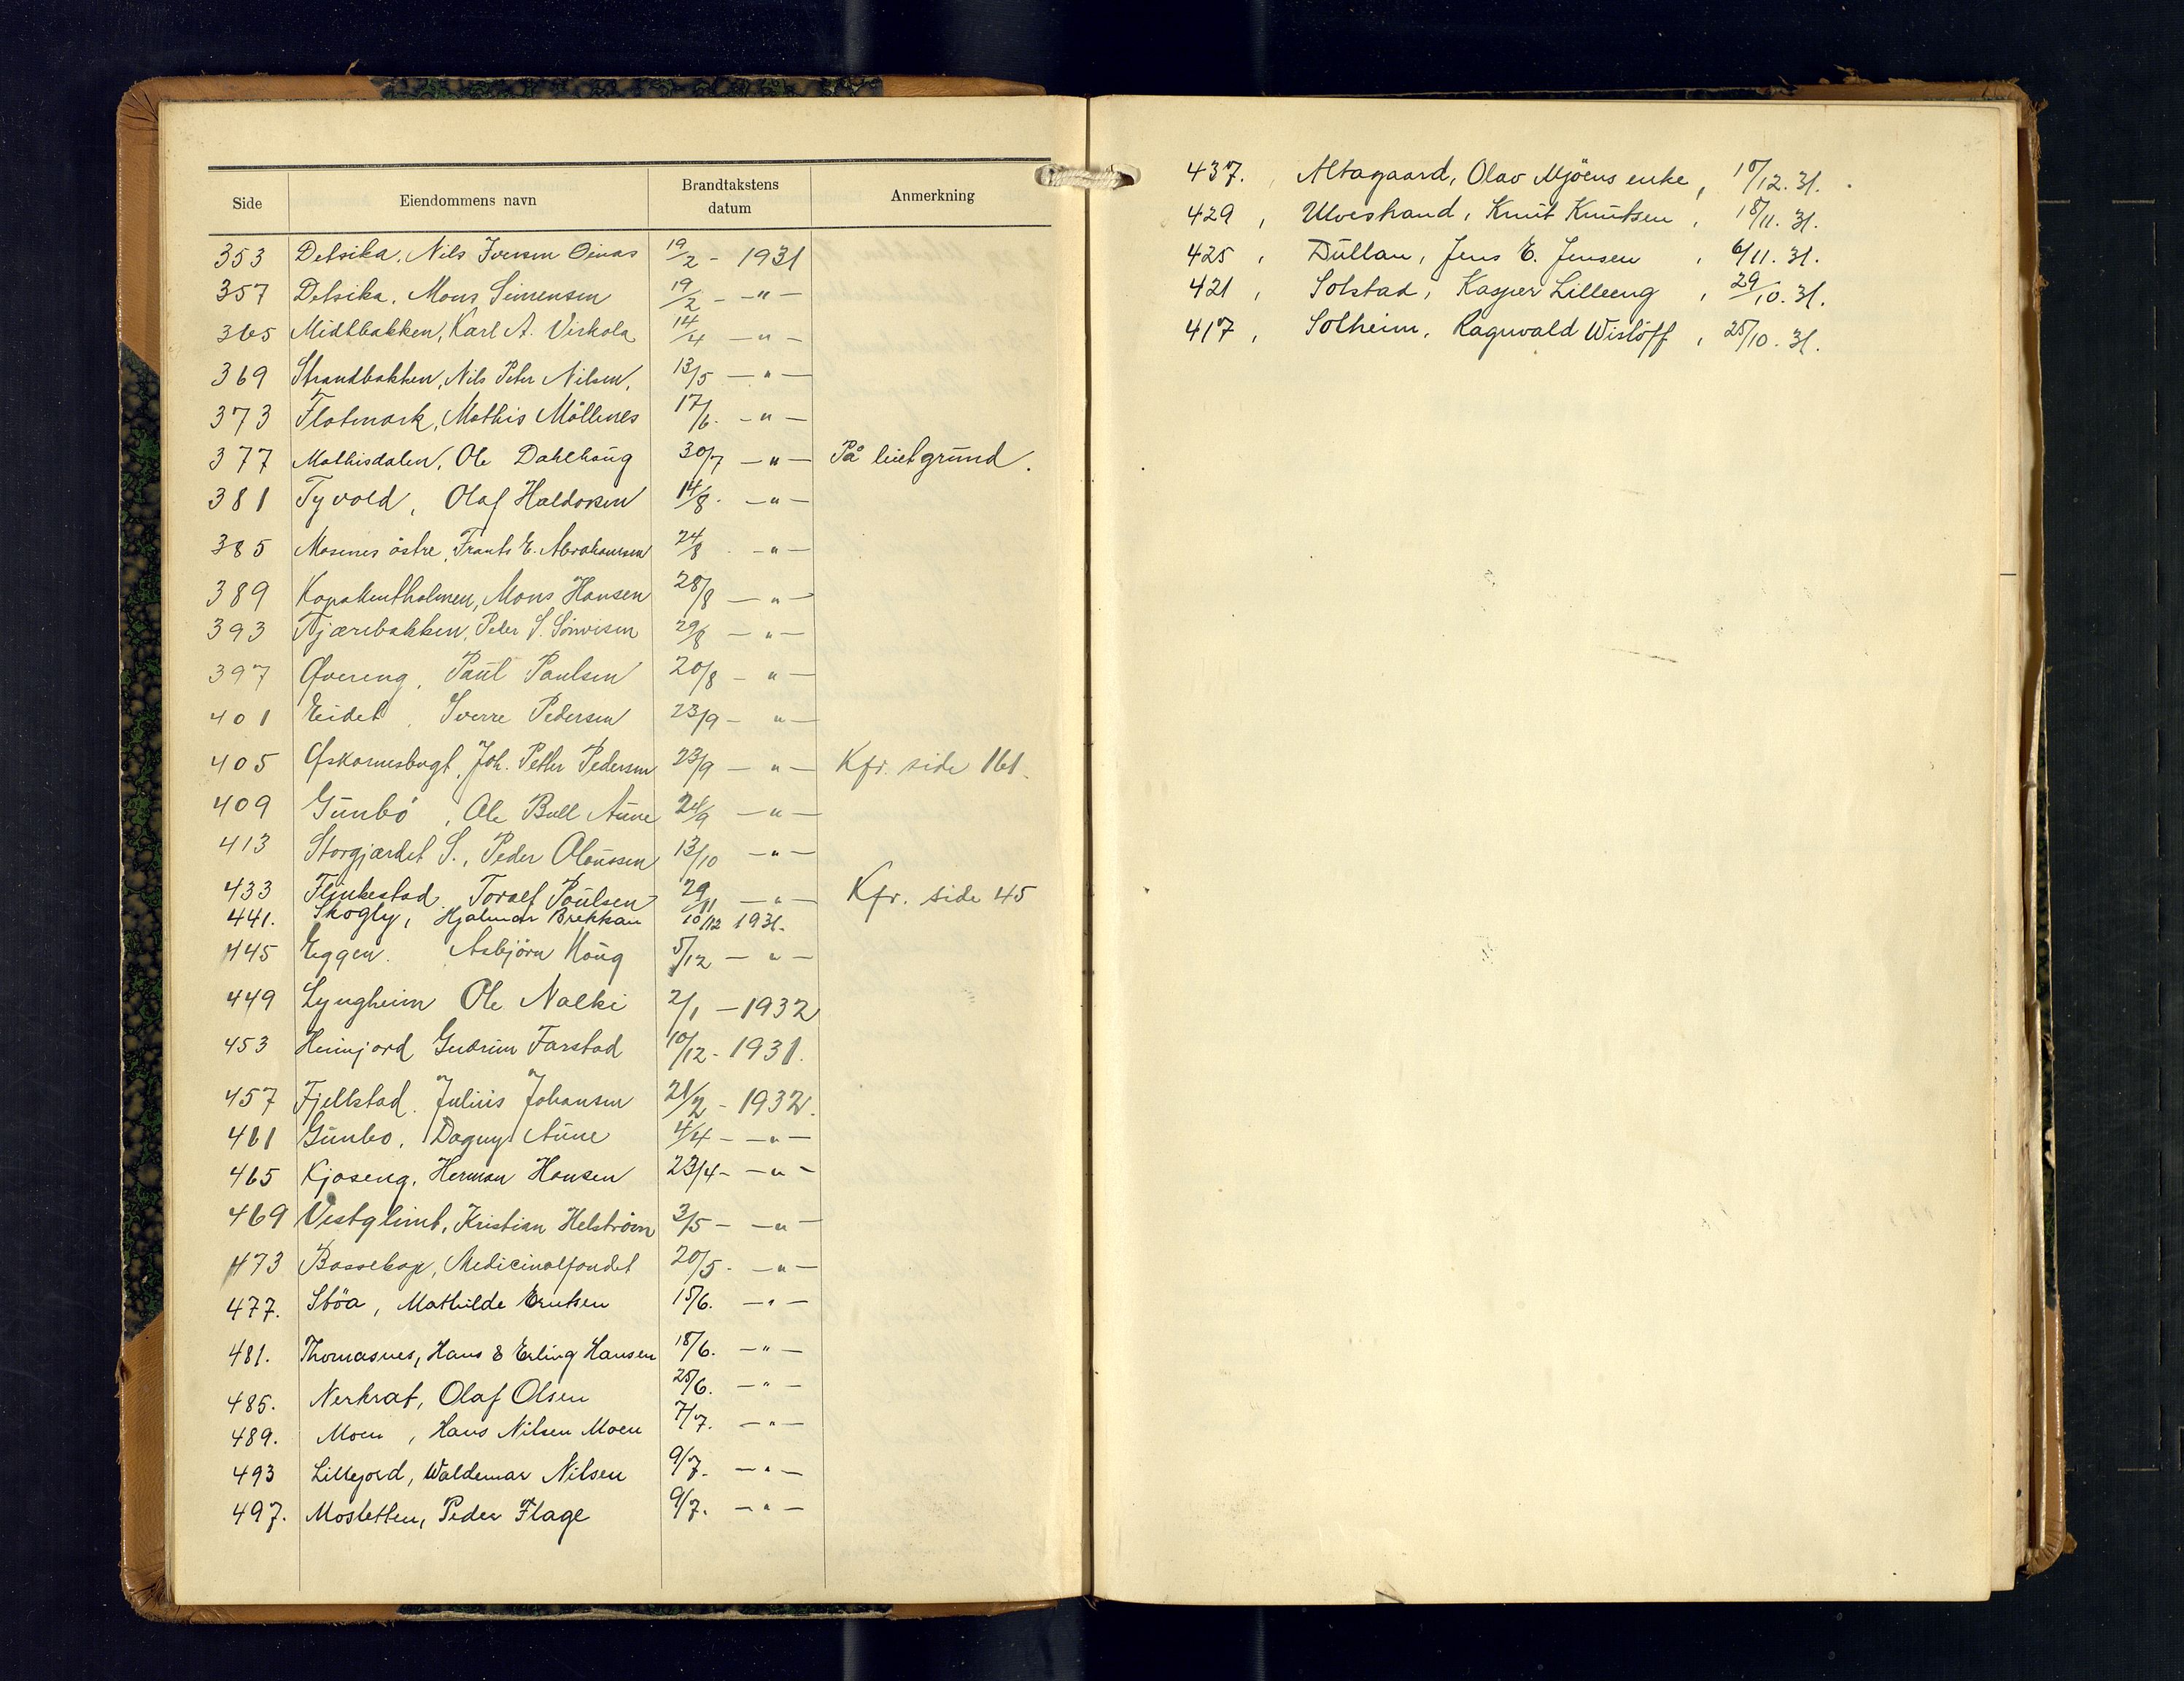 Side Eiendommens navn Brandtakstens datum Anmerkning
353 Detsika, Nils Iversen Oinas 19/2 - 1931
357 Detsika, Mons Simensen 19/2 - -"-
365 Midtbakken, Karl A. Virkola 14/4 -"-
369 Strandbakken, Nils Peter Nilsen, 13/5 -"-
373 Flatmark, Mathis Möllenes 17/6. -"-
377 Mathisdalen, Ole Dahlhaug 30/7 -"- På leiet grund.
381 Tyvold, Olaf Haldorsen 14/8. -"-
385 Mosenes östre, Frants E. Abrahamsen 24/8. -"-
389 Kopakentholmen, Mons Hansen 28/8 -"-
393 Tjærebakken, Peter S. 29/8 -"-
397 Øvereng, Paul Paulsen 20/8 -"-
401 Eidet, Sverre Pedersen 23/9 - "-
405 Øskarnesbugt, Joh. Petter Pedersen 23/9 -"- Kfr. side 161.
409 Gunbö, Ole Bull Aune 24/9 -"-
413 Storgjærdet S., Peder Olaussen 13/10 -"-
433 Flinkestad, Toralf Poulsen 29/11 -"- Kfr. side 45
441. Skogly, Hjalmar Brekkan 10/12 1931.
445 Eggen. Asbjörn Haug 5/12 -"-
449 Lyngheim Ole Nalki 2/1 - 1932
453 Heimjord Gudrun Farstad 10/12 - 1931.
457 Fjellstad. Julius Johansen 21/2 - 1932.
461 Gunbo, Dagny Aune 4/4 - -"-
465 Kjoseng, Herman Hansen 23/4 - -"-
469 Vestglimt, Kristian Helström 3/5 - -"-
473 Bossekop, Medicinalfondet 20/5. -"-
477. Stöa, Mathilde Erutsen 15/6. -"-
481. Thomasnes, Hans & Erling Hansen 18/6. -"-
485. Nerkrat, Olaf Olsen 25/6. -"-
489. Moen, Hans Nilsen Moen 7/7. -"-
493 Lillejord, Waldemar Nilsen 9/7. -"-
497. Mosletten, Peder Flage 9/7. -"-
437. , Altagaard, Olav Mjöens enke, 10/12. 31.
429 , Ulvestrand, Knut Knutsen, 18/11. 31.
425 , Dullan, Jens E. Jensen , 6/11. 31.
421 , Solstad, Kasper Lilleeng , 29/10. 31.
417 , Solheim, Ragnvald Wislöff , 25/10. 31.